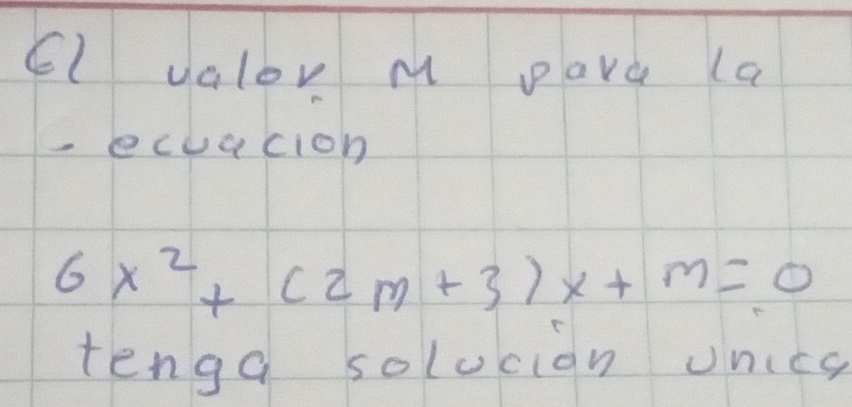 El valor M para la
- ecuacion
6x² + (2m+3)x + m = 0
tenga solución unica